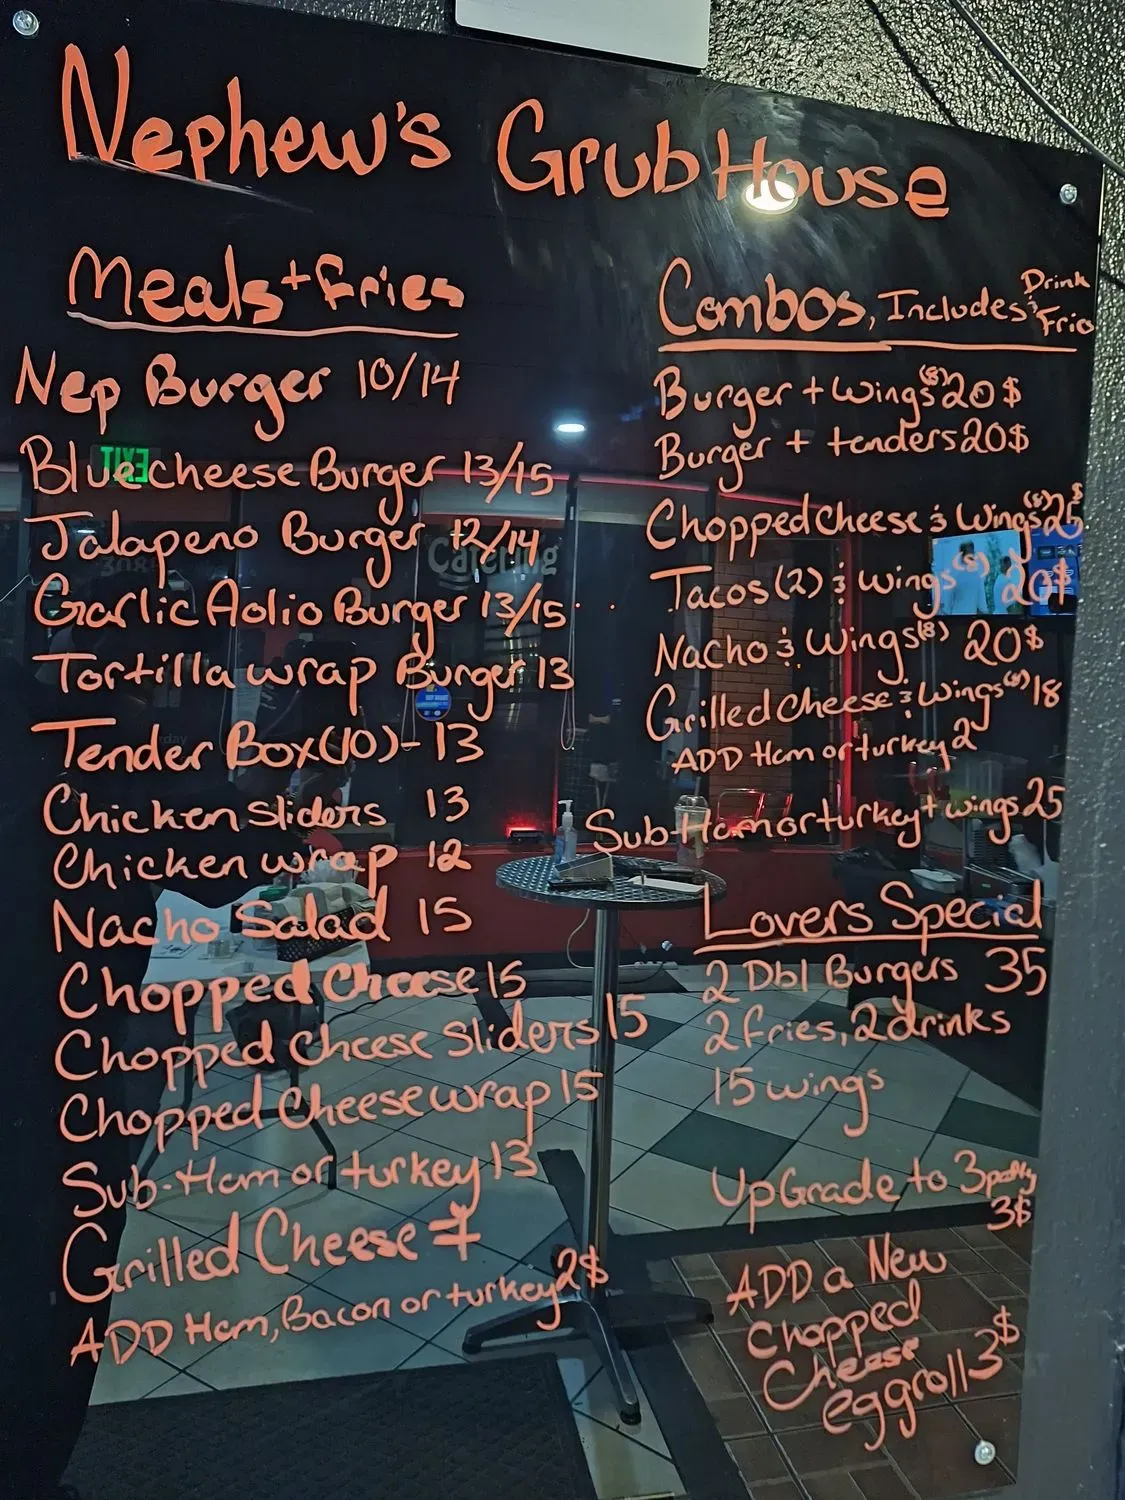 Nephew's GrubHouse
Meals + Fries
Nep Burger 10/14
Bluecheese Burger 13/15
Jalapeno Burger 12/14
Garlic Aolio Burger 13/15
Tortilla wrap Burger 13
Tender Box(10)- 13
Chicken sliders 13
Chicken wrap 12
Nacho Salad 15
Chopped Cheese 15
Chopped Cheese Sliders 15
Chopped Cheese wrap 15
Sub-Ham or turkey 13
Grilled Cheese 7
ADD Ham, Bacon or turkey 2$
Combos, Includes Drink & Fries
Burger + Wings (8) 20$
Burger + tenders 20$
Chopped cheese & Wings (8) 25$
Tacos (2) & wings (8) 20$
Nacho & Wings (8) 20$
Grilled Cheese & Wings (8) 18
ADD Ham or turkey 2
Sub-Ham or turkey + wings 25
Lovers Special
2 Dbl Burgers 35
2 fries, 2 drinks
15 wings
UpGrade to 3 patty
3$
ADD a New
Chopped
Cheese
eggroll 3$
EXIT
Catering